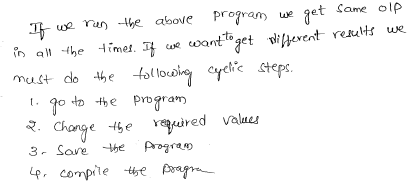 If we run the above program we get same o/p
in all the times. If we want to get different results we
must do the following cyclic steps.
1. go to the program
2. change the required values
3. Save the program
4. compile the